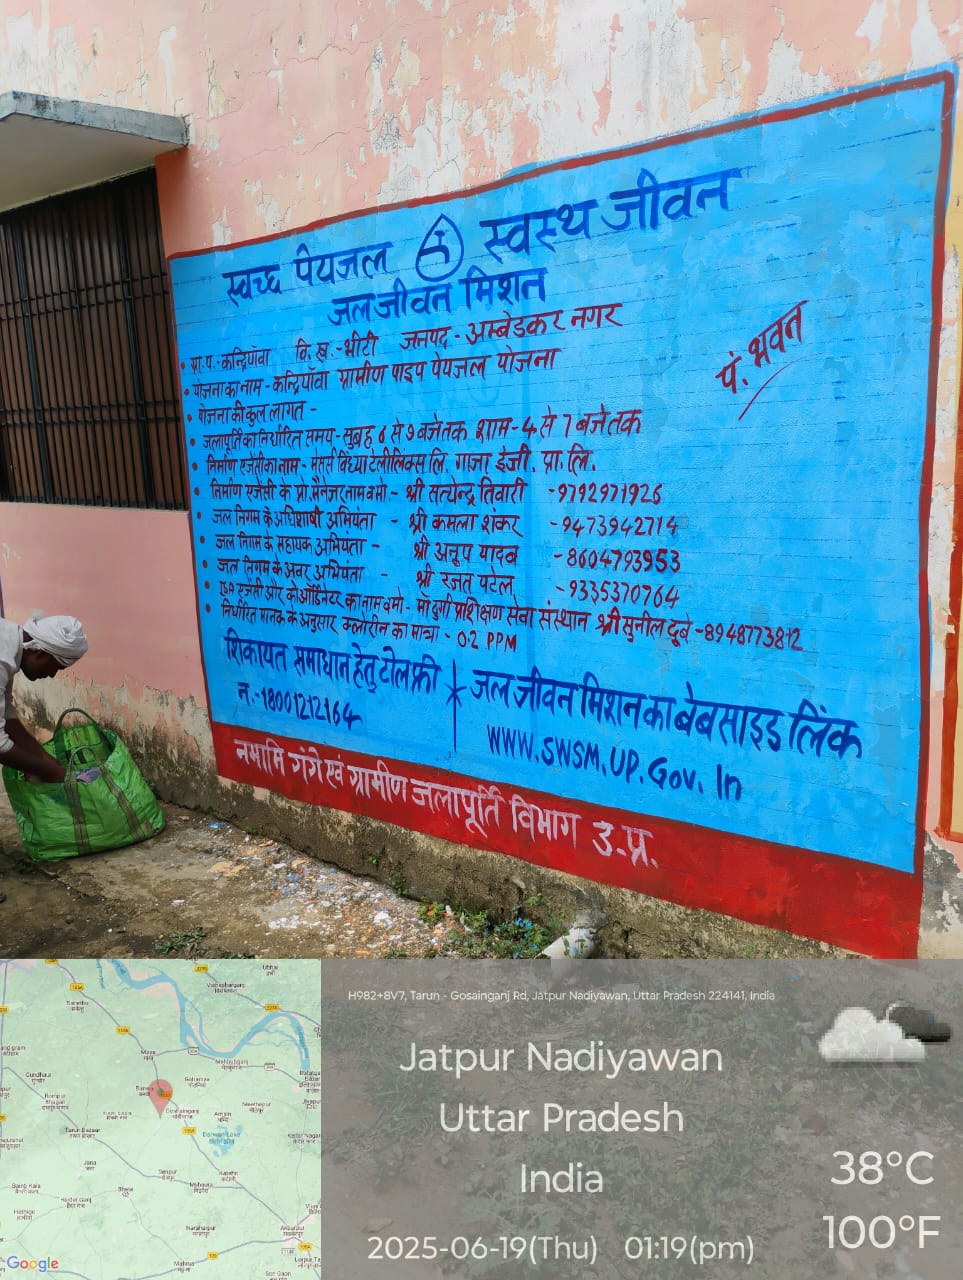 स्वच्छ पेयजल स्वस्थ जीवन
जल जीवन मिशन
ग्रा.प.-कन्द्रियाँवा वि.ख.-भीटी जनपद-अम्बेडकर नगर
योजना का नाम - कन्द्रियाँवा ग्रामीण पाइप पेयजल योजना
योजना की कुल लागत -
पं. भवन
जलापूर्ति का निर्धारित समय - सुबह 6 से 9 बजे तक शाम - 4 से 7 बजे तक
निर्माण एजेंसी का नाम - मेसर्स विंध्या टेलीलिंक्स लि. गाजा इंजी. प्रा. लि.
निर्माण एजेंसी के प्रो. मैनेजर नाम व मो. - श्री सत्येन्द्र तिवारी -9792971926
जल निगम के अधिशाषी अभियंता - श्री कमला शंकर -9473942714
जल निगम के सहायक अभियंता - श्री अनूप यादव -8604793953
जल निगम के अवर अभियंता - श्री रजत पटेल -9335370764
ISA एजेंसी और को ऑर्डिनेटर का नाम व मो - माँ दुर्गा प्रशिक्षण सेवा संस्थान श्री सुनील दूबे -8948773812
निर्धारित मानक के अनुसार क्लोरीन का मात्रा - 02 PPM
शिकायत समाधान हेतु टोल फ्री
न.-18001212164
जल जीवन मिशन का बेबसाइड लिंक
WWW.SWSM.UP.Gov.In
नमामि गंगे एवं ग्रामीण जलापूर्ति विभाग उ.प्र.
H982+8V7, Tarun - Gosainganj Rd, Jatpur Nadiyawan, Uttar Pradesh 224141, India
Jatpur Nadiyawan
Uttar Pradesh
India
38°C
100°F
2025-06-19(Thu) 01:19(pm)
Google